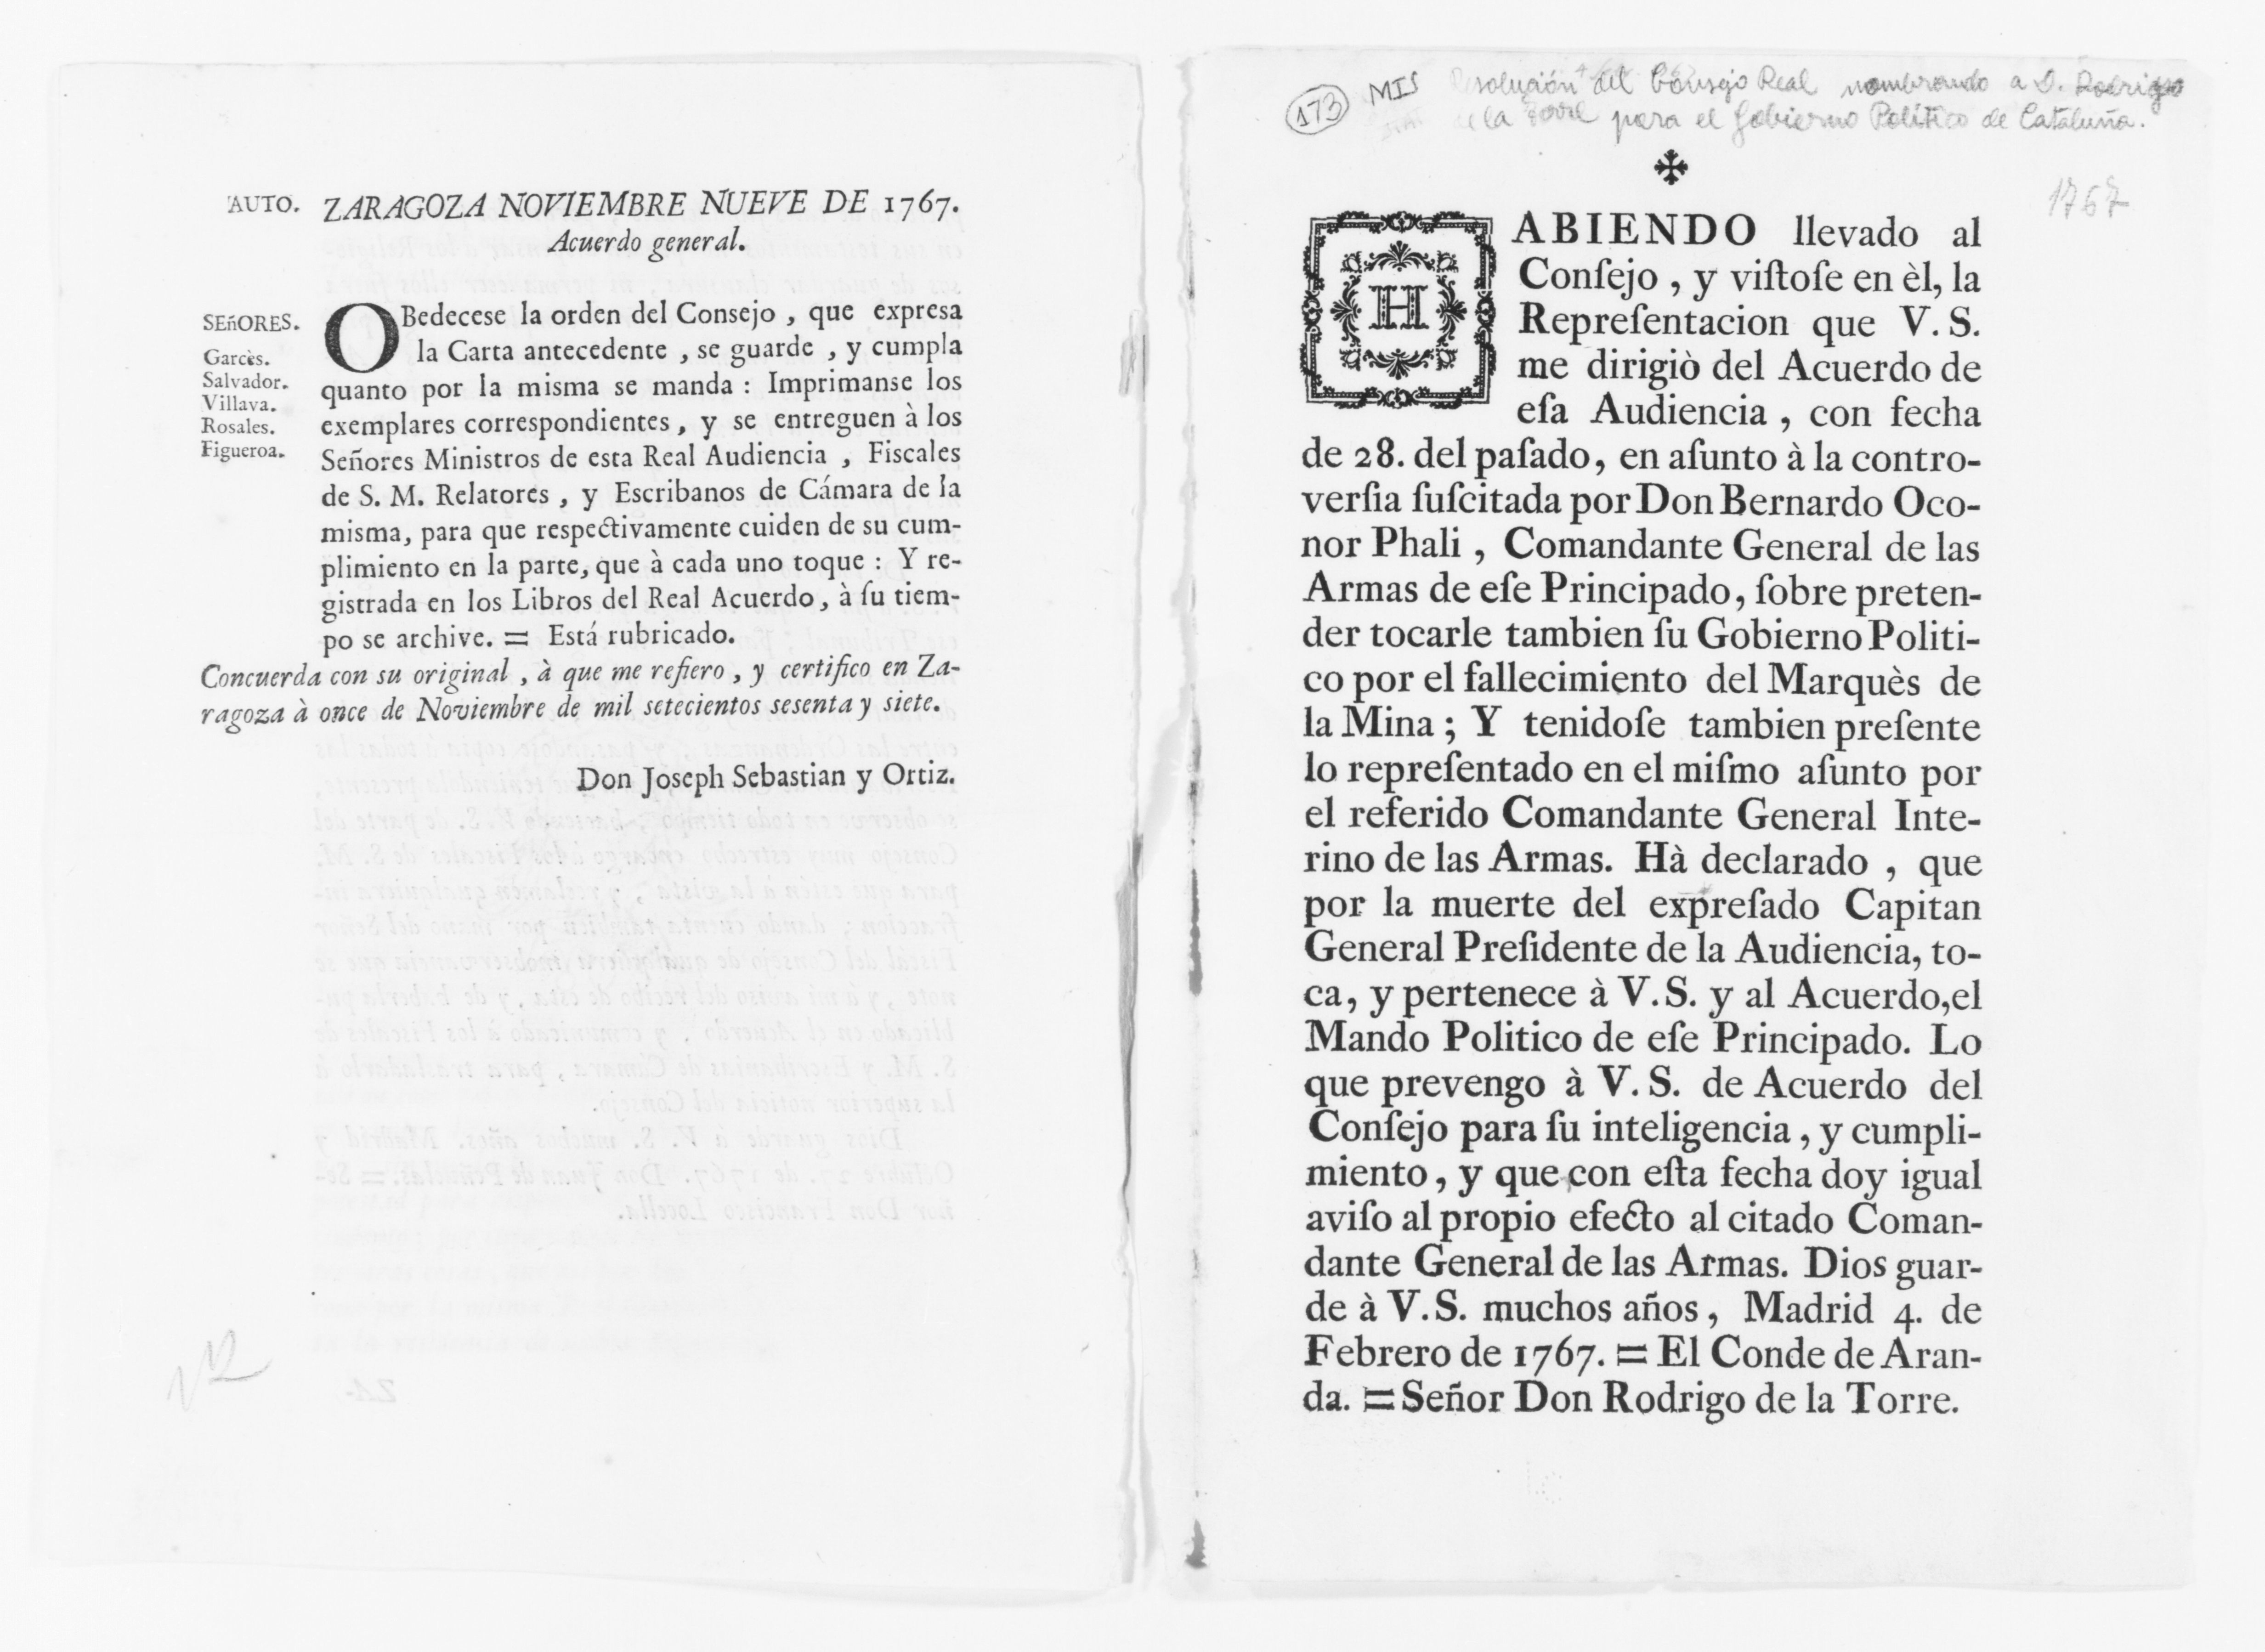 AUTO. ZARAGOZA NOVIEMBRE NUEVE DE 1767.
Acuerdo general.
SEñORES.
Garcès.
Salvador.
Villava.
Rosales.
Figueroa.
OBedecese la orden del Consejo , que expresa
la Carta antecedente , se guarde , y cumpla
quanto por la misma se manda : Imprimanse los
exemplares correspondientes , y se entreguen à los
Señores Ministros de esta Real Audiencia , Fiscales
de S. M. Relatores , y Escribanos de Cámara de la
misma, para que respectivamente cuiden de su cum-
plimiento en la parte, que à cada uno toque : Y re-
gistrada en los Libros del Real Acuerdo, à ſu tiem-
po se archive. = Está rubricado.
Concuerda con su original , à que me refiero , y certifico en Za-
ragoza à once de Noviembre de mil setecientos sesenta y siete.
Don Joseph Sebastian y Ortiz.
173 MIS Resolución del Consejo Real nombrando a D. Rodrigo
de la Torre para el Gobierno Político de Cataluña.
1767
HABIENDO llevado al
Conſejo , y viſtoſe en èl, la
Repreſentacion que V. S.
me dirigiò del Acuerdo de
eſa Audiencia , con fecha
de 28. del paſado, en aſunto à la contro-
verſia ſuſcitada por Don Bernardo Oco-
nor Phali , Comandante General de las
Armas de eſe Principado, ſobre preten-
der tocarle tambien ſu Gobierno Politi-
co por el fallecimiento del Marquès de
la Mina ; Y tenidoſe tambien preſente
lo repreſentado en el miſmo aſunto por
el referido Comandante General Inte-
rino de las Armas. Hà declarado , que
por la muerte del expreſado Capitan
General Preſidente de la Audiencia, to-
ca, y pertenece à V.S. y al Acuerdo,el
Mando Politico de eſe Principado. Lo
que prevengo à V. S. de Acuerdo del
Conſejo para ſu inteligencia , y cumpli-
miento , y que con eſta fecha doy igual
aviſo al propio efecto al citado Coman-
dante General de las Armas. Dios guar-
de à V.S. muchos años , Madrid 4. de
Febrero de 1767. = El Conde de Aran-
da. = Señor Don Rodrigo de la Torre.